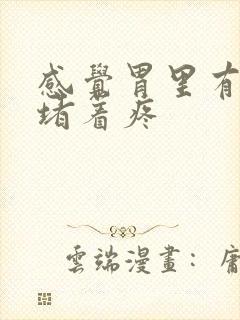 感覺胃里有
堵着疼
雲端漫畫：庸